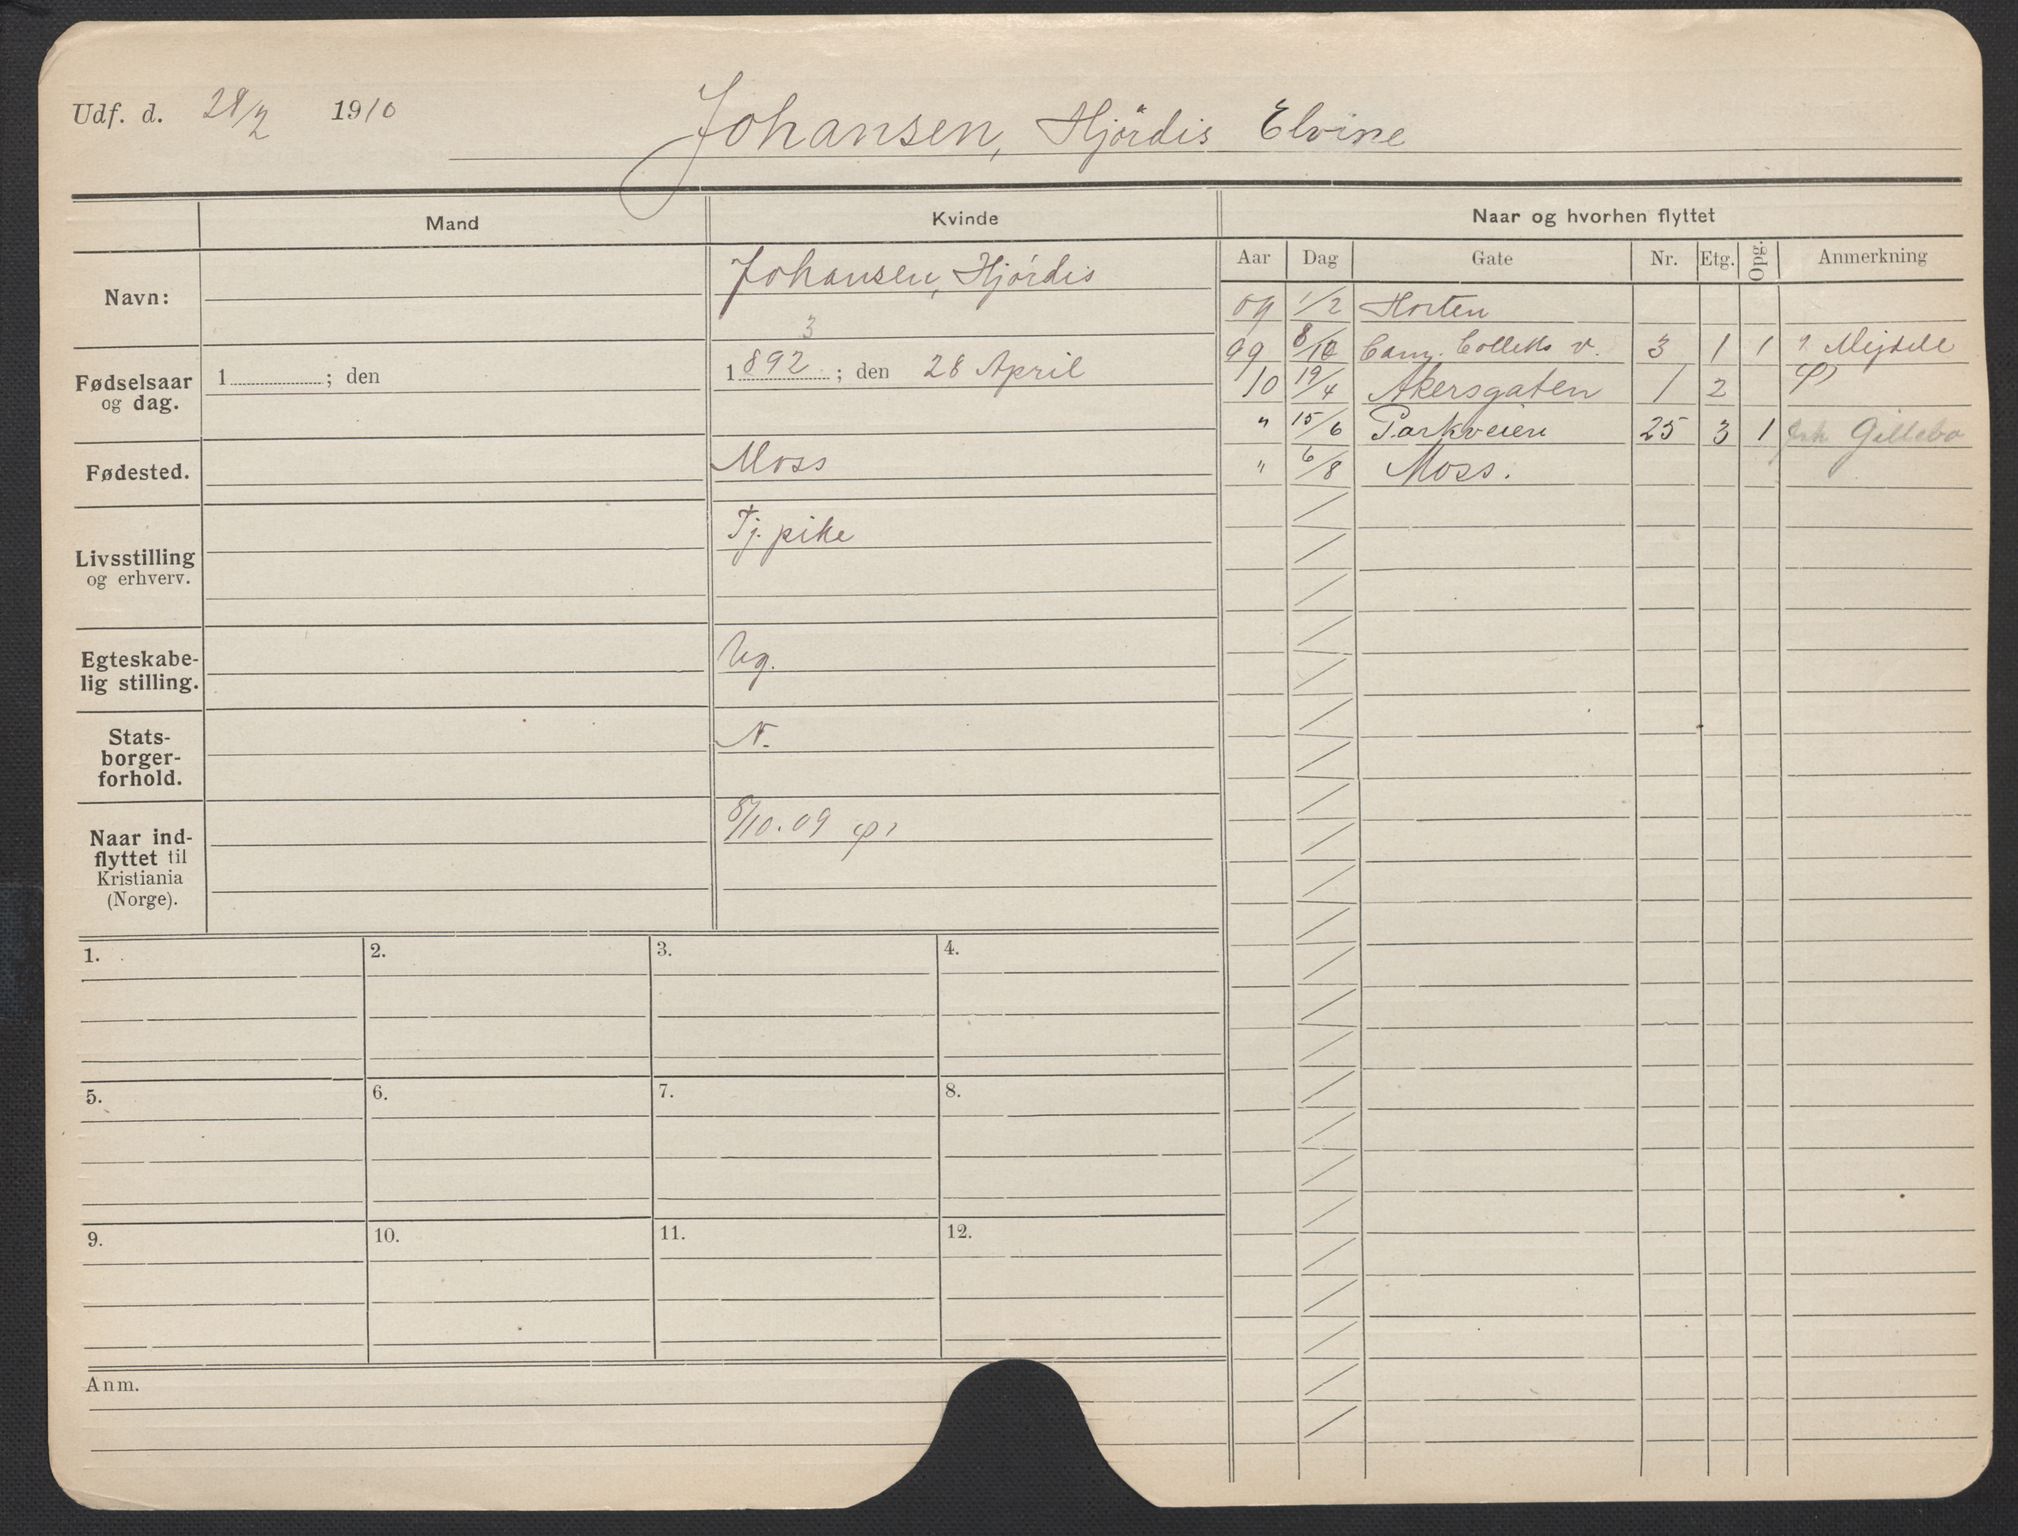 Udf. d. 28/2 1910
Johansen, Hjördis Elvine
Mand
Kvinde
Navn:
Johansen, Hjórdis
Fødselsaar og dag.
1 ; den
3
1892 ; den 28 April
Fødested.
Moss
Livsstilling og erhverv.
Tj. pike
Egteskabe-
lig stilling.
Ug.
Stats-
borger-
forhold.
N.
Naar ind-
flyttet til
Kristiania
(Norge).
8/10.09
1. 2. 3. 4.
5. 6. 7. 8.
9. 10. 11. 12.
Anm.
Naar og hvorhen flyttet
Aar Dag Gate Nr. Etg. Opg. Anmerkning
09 1/2 Horten
09 8/10 Cam. Colletts v. 3 1 1 Mejdell
10 19/4 Akersgaten 1 2
" 15/6 Parkveien 25 3 1 Gillebo
" 6/8 Moss.